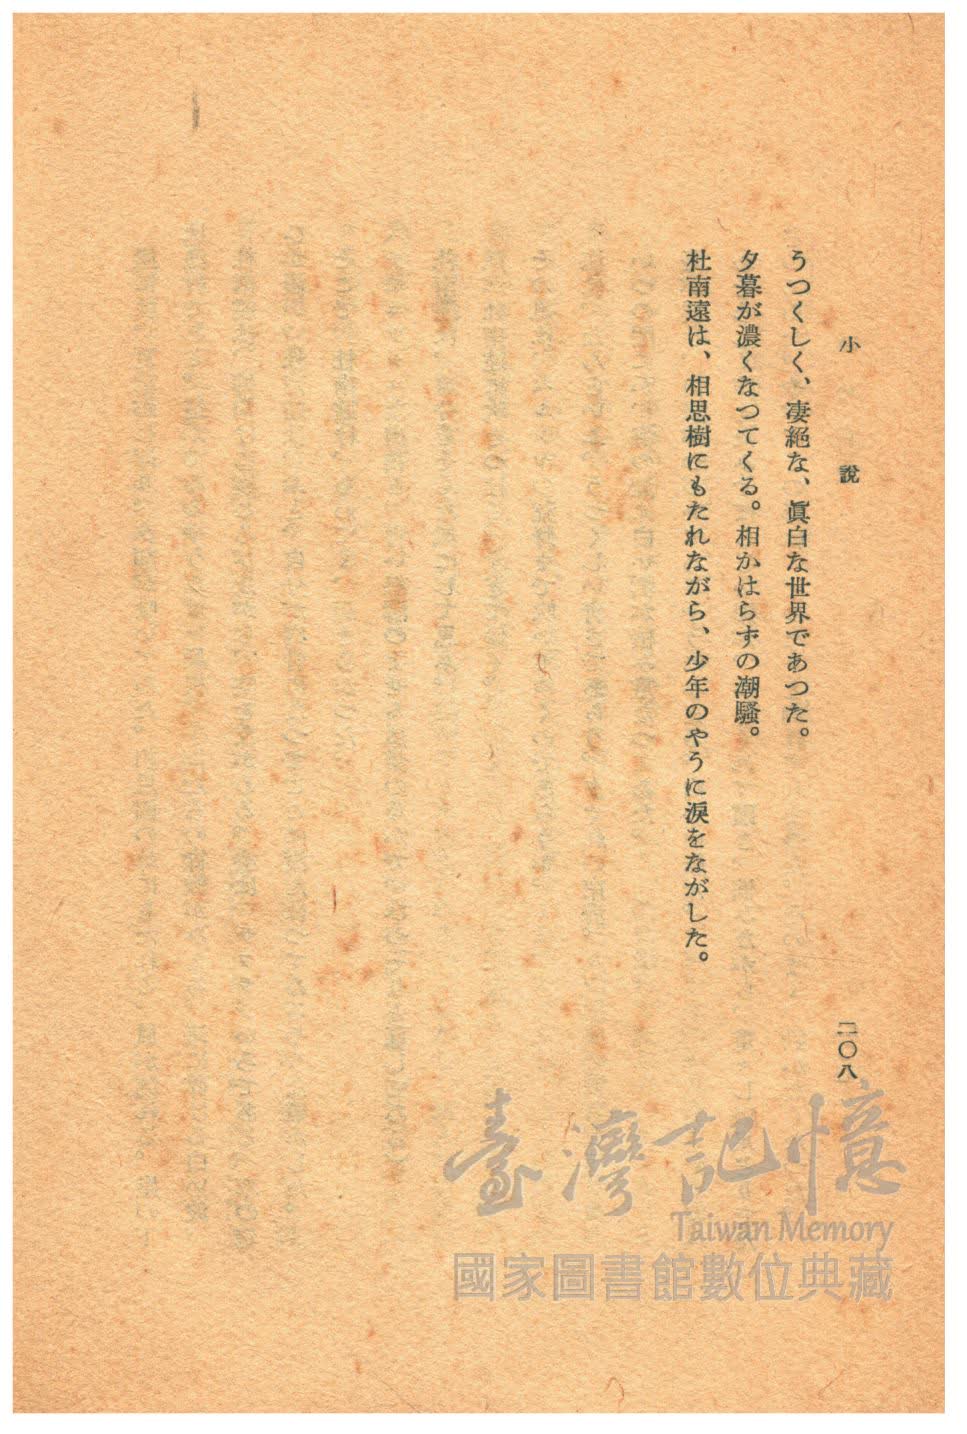 小說
うつくしく、凄絕な、眞白な世界であつた。
夕暮が濃くなつてくる。相かはらずの潮騷。
杜南遠は、相思樹にもたれながら、少年のやうに淚をながした。
二〇八
臺灣記憶
Taiwan Memory
國家圖書館數位典藏